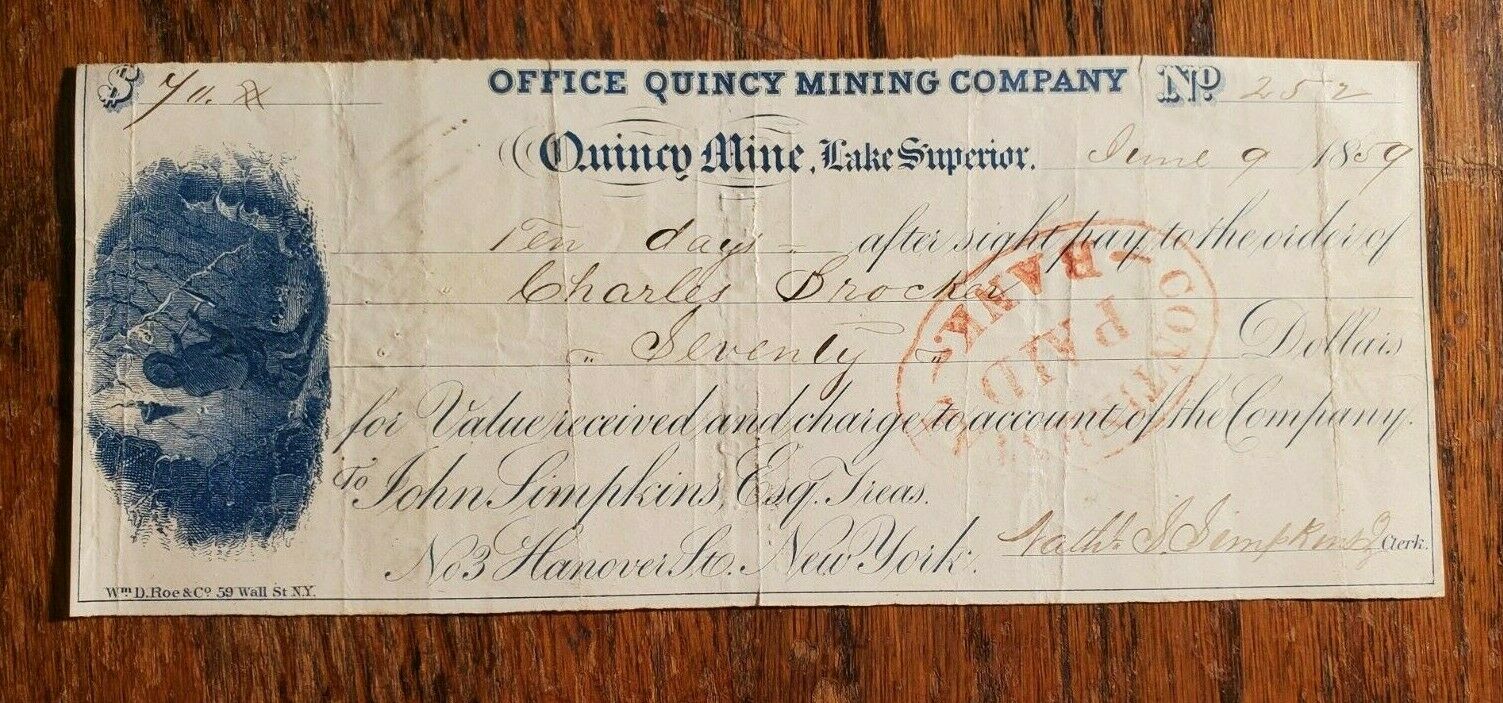 $ 70.
OFFICE QUINCY MINING COMPANY No. 252
Quincy Mine, Lake Superior. June 9 1859
Ten days after sight pay to the order of
Charles Brocker
" Seventy " Dollars
for Value received and charge to account of the Company.
To John Simpkins, Esq. Treas.
No 3 Hanover St. New York.
Nathl. S. Simpkins Jr Clerk.
Wm D. Roe & Co. 59 Wall St N.Y.
PAID
BANK